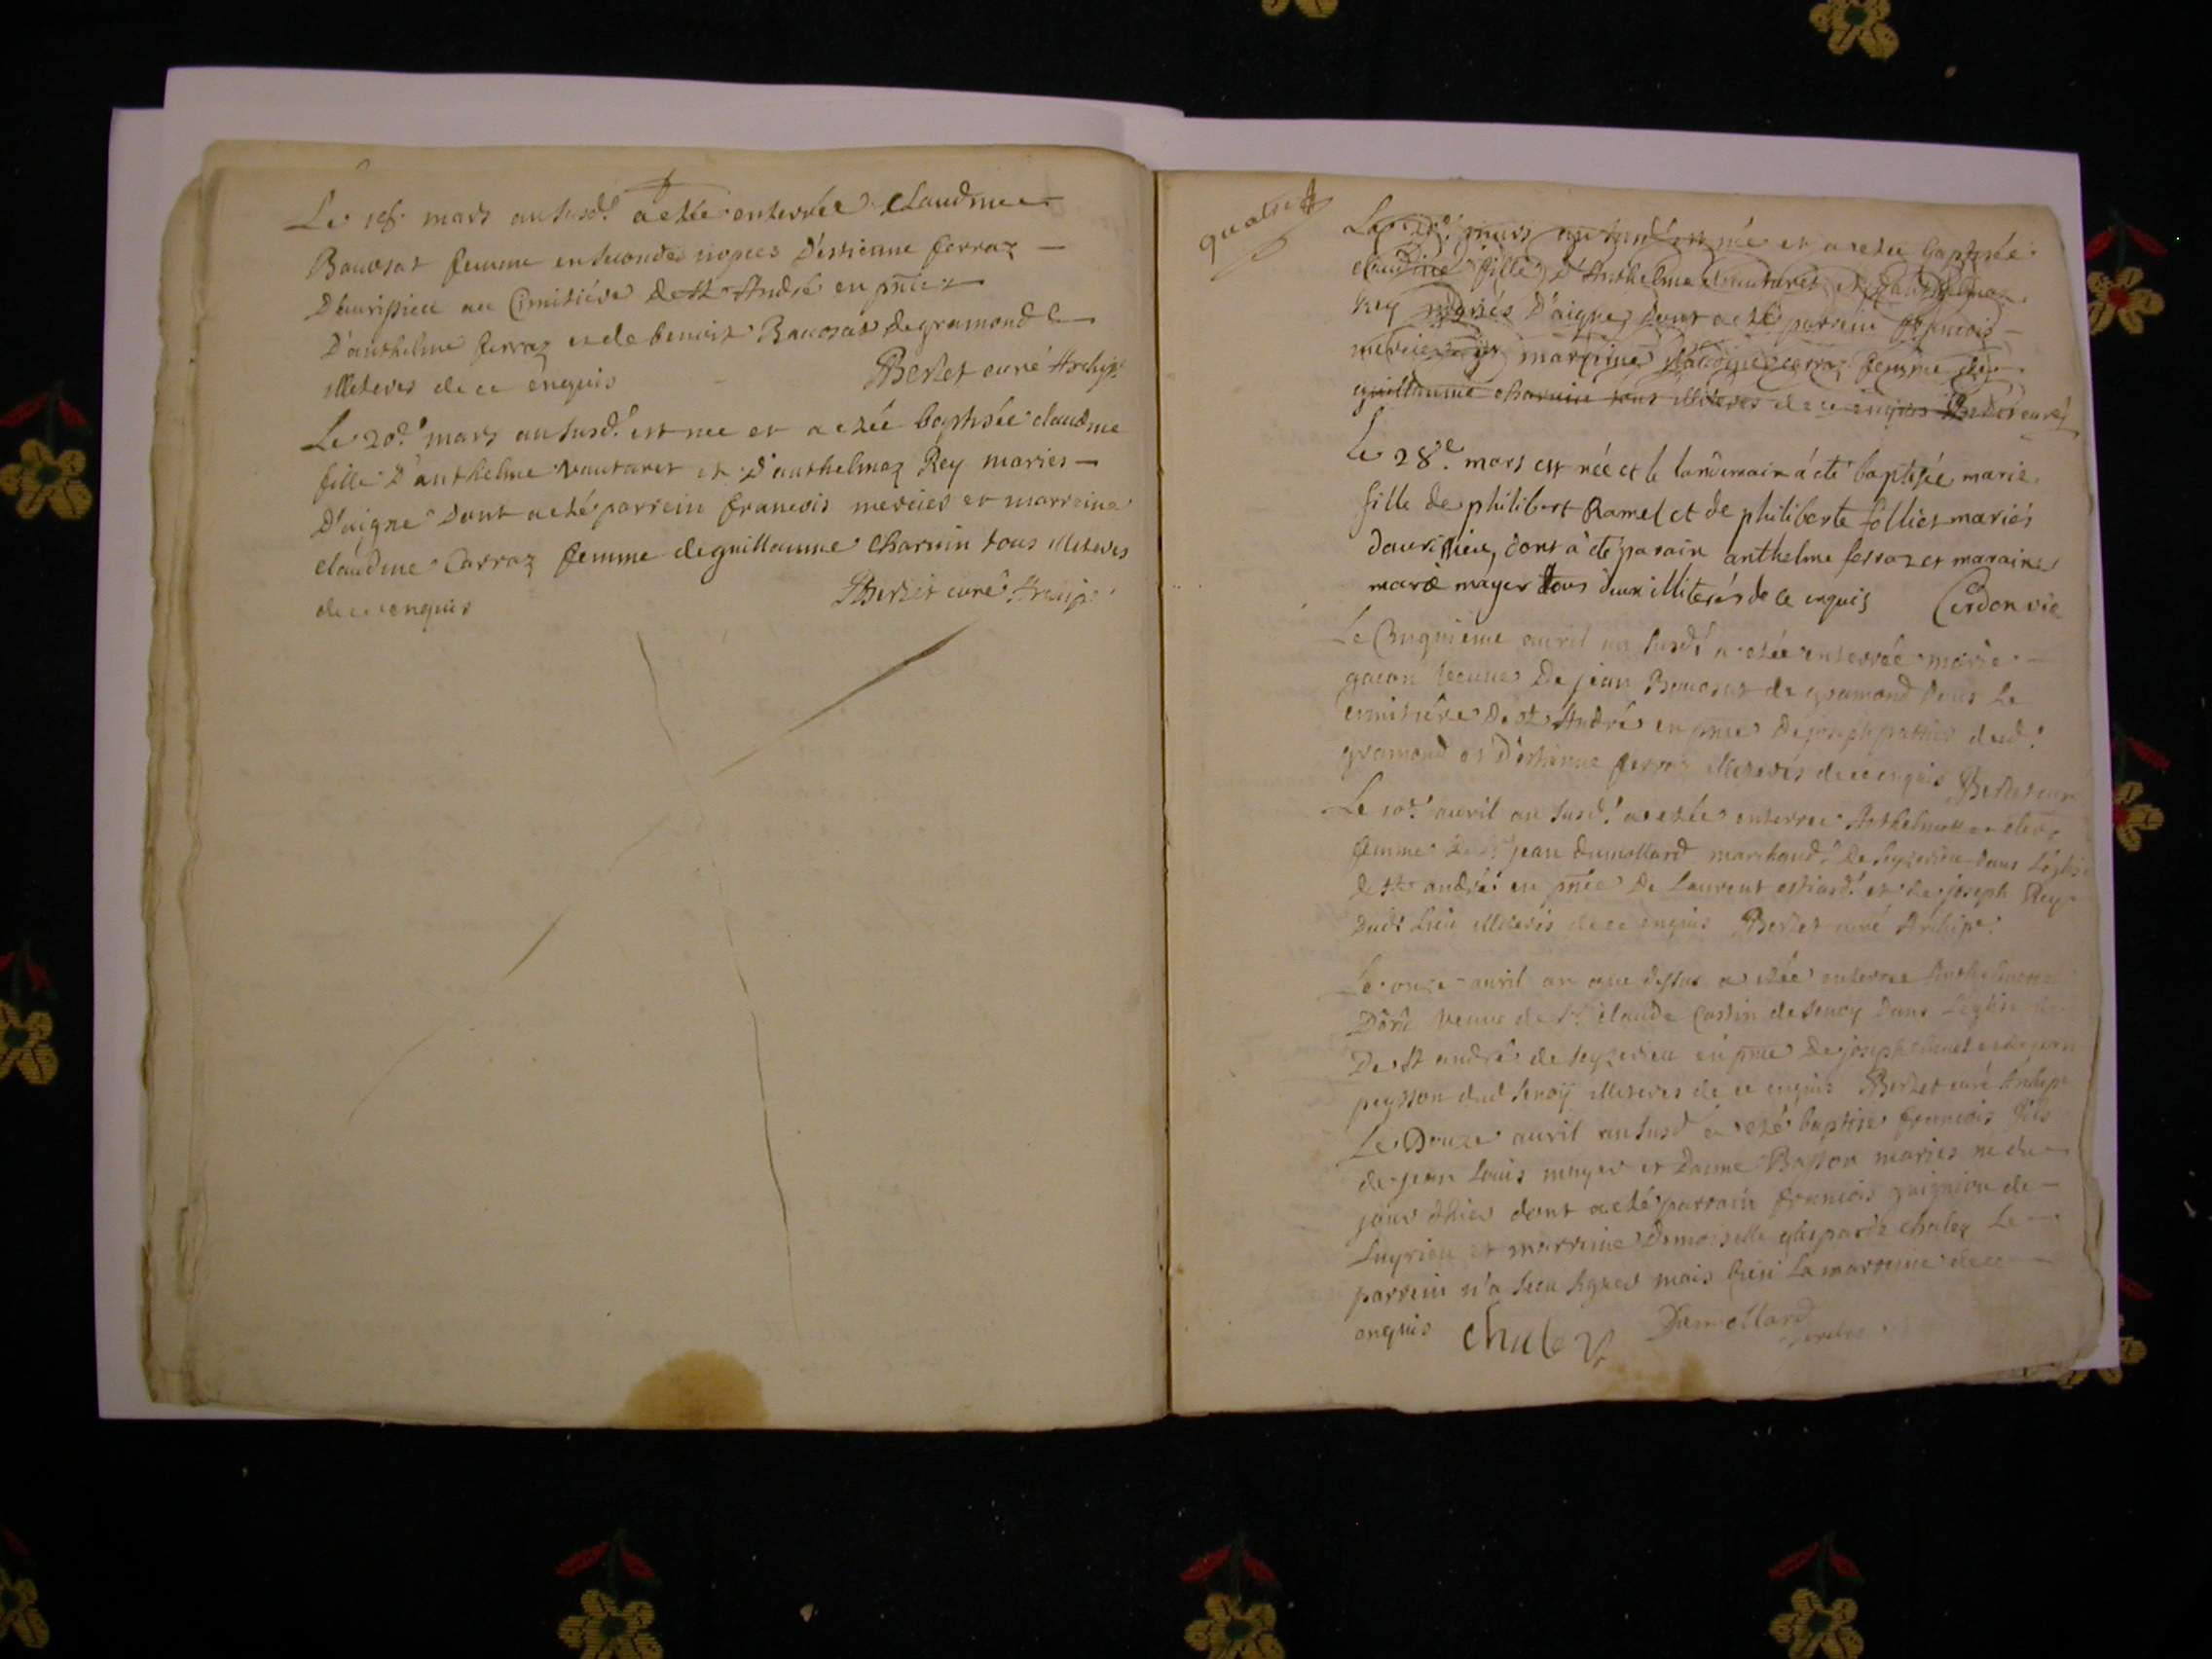 Le 18e mars an susd.t a etée enterrée Claudine
Baucrat femme en secondes nopces d'estienne ferraz
D'aurissieu au Cimitiére de St André en pnce
D'anthelme ferraz et de benoit Baucrat de gramond
illeteres de ce enquis Berlet curé Archip.
Le 20.e mars an susd.t est née et a etée baptisée claudine
fille d'anthelme vautaret et d'anthelmaz Rey maries
D'aigne dont a eté parrein francois mercier et marreine
claudine Carraz femme de guillaume Charvin tous illeteres
de ce enquis Berlet curé Archip.
quatre
Le mars an susd.t est née et a etée baptisée
claudine fille d'Anthelme vautaret et
Rey mariés D'aigne dont a eté parrein francois
mercier et marreine claudine carraz femme de
guillaume charvin tous illeteres de ce enquis Berlet curé
Le 28.e mars est née et le landemain à été baptisée marie
fille de philibert Ramel et de philiberte follies mariés
daurissieu, dont à été parain anthelme ferraz et maraine
marie mayer tous deux illiterés de ce enquis Cerdon vic
Le Cinquiéme avril an susd.t a etée enterrée marie
gacon veuve De jean Baucrat de gramond dans Le
cimitiére De St André en pnce De joseph pattier dud.t
gramond et D'estienne ferraz illeterés de ce enquis Berlet curé
Le 10.e avril an susd.t a etée enterrée
femme de Sr jean Dumollard marchand De seyzerieu dans L'église
de St andré en pnce De Laurent et de joseph Rey
Dud.t Lieu illeterés de ce enquis Berlet curé Archip.
Le onze avril an que dessus a etée enterree
veuve de Sr claude Costin de senoy Dans L'église
De St andré de seyzerieu en pnce De joseph
peysson dud senoy illeteres de ce enquis Berlet curé Archip
Le Douze avril an susd a eté baptisé francois fils
de jean Louis mayer et Basson maries ne du
jour d'hier dont a eté parrain francois de
Luyrieu et marreine Demoiselle gasparde chaley Le
parrein n'a sceu signer mais bien La marreine de ce
enquis chaley Dumollard